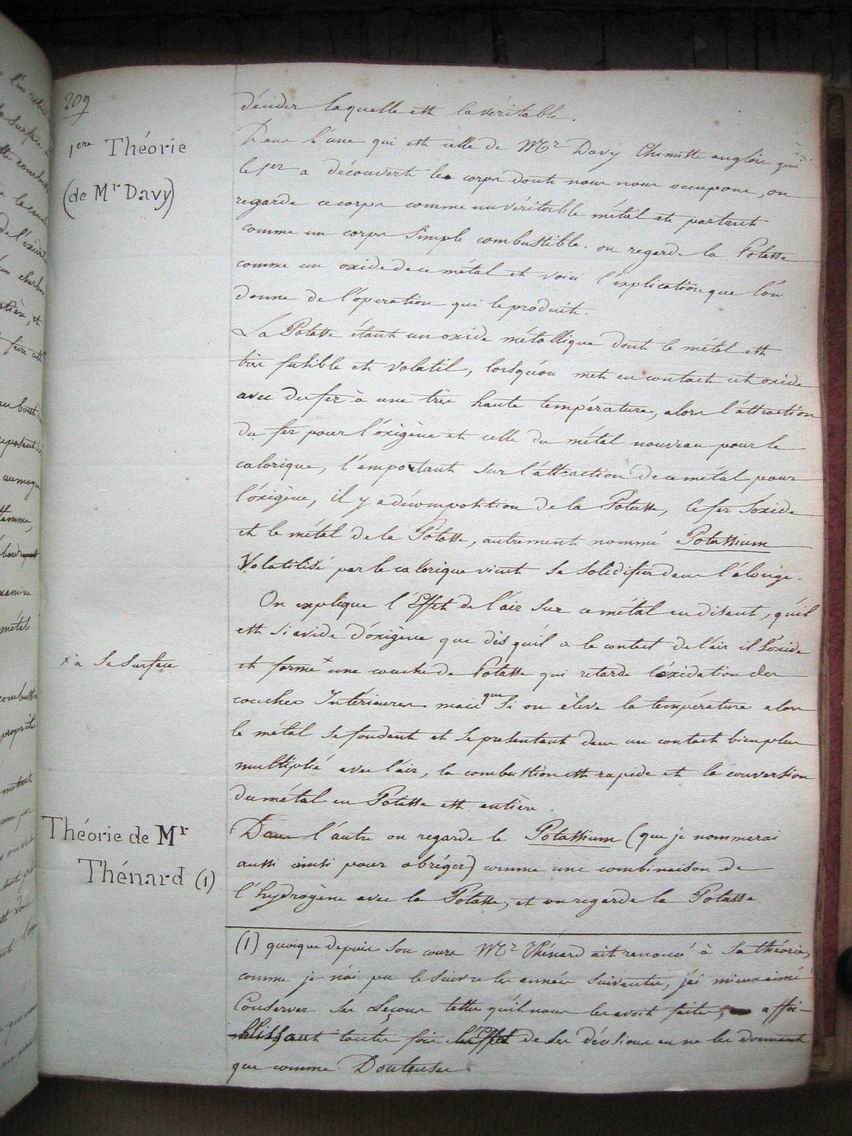 209
décider laquelle est la véritable.
1ere Théorie
(de Mr Davy)
Dans l'une qui est celle de Mr Davy Chimiste anglois qui
le 1er a découvert le corps dont nous nous occupons, on
regarde ce corps comme un véritable métal et partant
comme un corps simple combustible. on regarde la Potasse
comme un oxide de ce métal et voici l'explication que l'on
donne de l'opération qui le produit.
La Potasse étant un oxide métallique dont le métal est
très fusible et volatil, lorsqu'on met en contact cet oxide
avec du fer à une très haute température, alors l'attraction
du fer pour l'oxigène et celle du métal nouveau pour le
calorique, l'emportant sur l'attraction de ce métal pour
l'oxigène, il y a décomposition de la Potasse, le fer s'oxide
et le métal de la Potasse, autrement nommé Potassium
Volatilisé par le calorique vient se solidifier dans l'alonge.
On explique l'Effet de l'air sur ce métal en disant, qu'il
est si avide d'oxigène que dès qu'il a le contact de l'air il s'oxide
x à sa surface
et forme x une couche de Potasse qui retarde l'oxidation des
couches Intérieures mais que si on élève la température alors
le métal se fondant et se présentant dans un contact bien plus
multiplié avec l'air, la combustion est rapide et la conversion
du métal en Potasse est entière.
Théorie de Mr
Thénard (1)
Dans l'autre on regarde le Potassium (que je nommerai
aussi ainsi pour abréger) comme une combinaison de
l'hydrogène avec la Potasse, et on regarde la Potasse
(1) quoique depuis son cours Mr Thénard ait renoncé à sa théorie,
comme je n'ai pu le suivre les années suivantes, j'ai mieux aimé
Conserver ses Leçons telles qu'il nous les avoit faites, affoi-
blissant toute fois l'Effet de ses décisions en ne les donnant
que comme Douteuses.